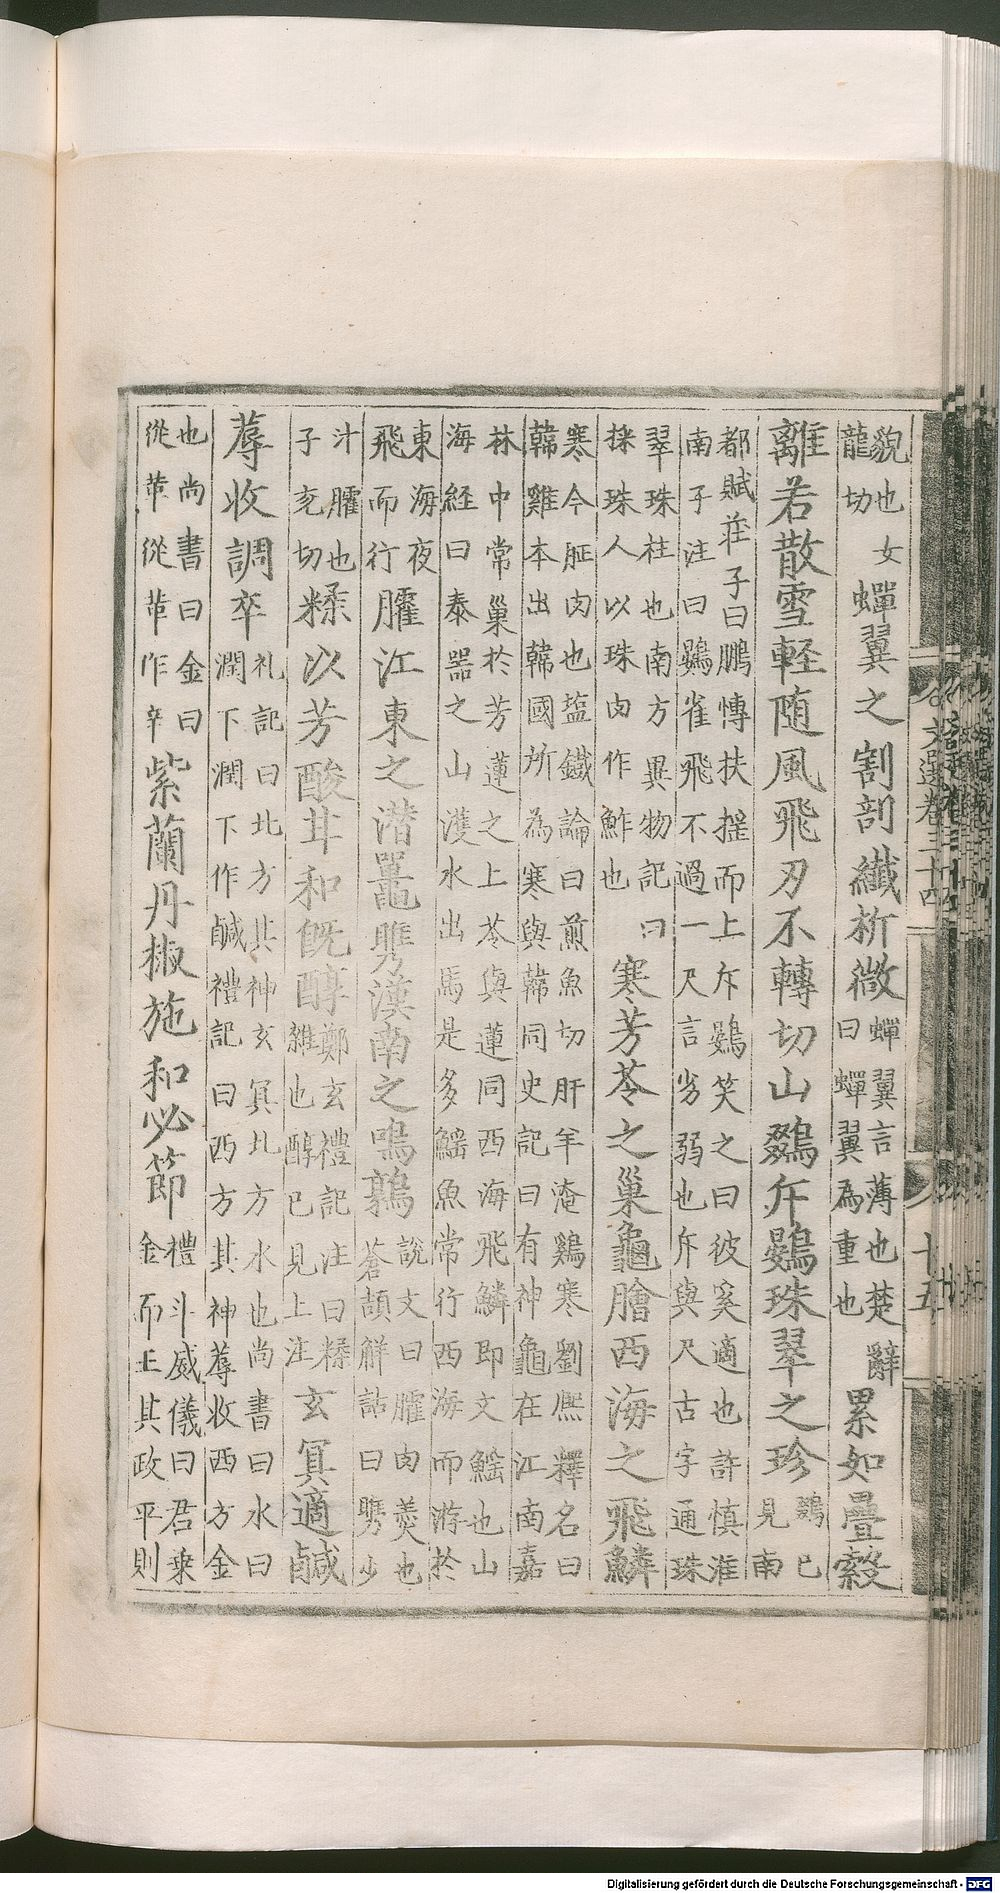 貌也女
龍切
蟬翼之割剖纖析微
蟬翼言薄也楚辭
曰蟬翼為重也
累如疊縠
離若散雪軽随風飛刃不轉切山鵽斥鷃珠翠之珍
鵽已
見南
都賦莊子曰鵬慱扶揺而上斥鷃笑之曰彼奚適也許慎淮
南子注曰鷃雀飛不過一尺言劣弱也斥與尺古字通珠
翠珠柱也南方異物記曰
採珠人以珠肉作鮓也
寒芳苓之巢龜膾西海之飛鱗
寒今胚肉也塩鐵論曰煎魚切肝羊淹鷄寒劉熈釋名曰
韓雞本出韓國所為寒與韓同史記曰有神龜在江南嘉
林中常巢於芳蓮之上苓與蓮同西海飛鱗即文鰩也山
海経曰泰噐之山濩水出焉是多鰩魚常行西海而游於
東海夜
飛而行
臛江東之潜鼉臇漢南之鳴鶉
說文曰臛肉羮也
蒼頡解詁曰臇少
汁臛也
子兖切
糅以芳酸甘和旣醇
鄭玄禮記注曰糅
雜也醇已見上注
玄冥適鹹
蓐收調辛
礼記曰北方其神玄冥北方水也尚書曰水曰
潤下潤下作鹹禮記曰西方其神蓐收西方金
也尚書曰金曰
從革從革作辛
紫蘭丹椒施和必節
禮斗威儀曰君乗
金而王其政平則
文選卷三十四
十五
Digitalisierung gefördert durch die Deutsche Forschungsgemeinschaft - DFG